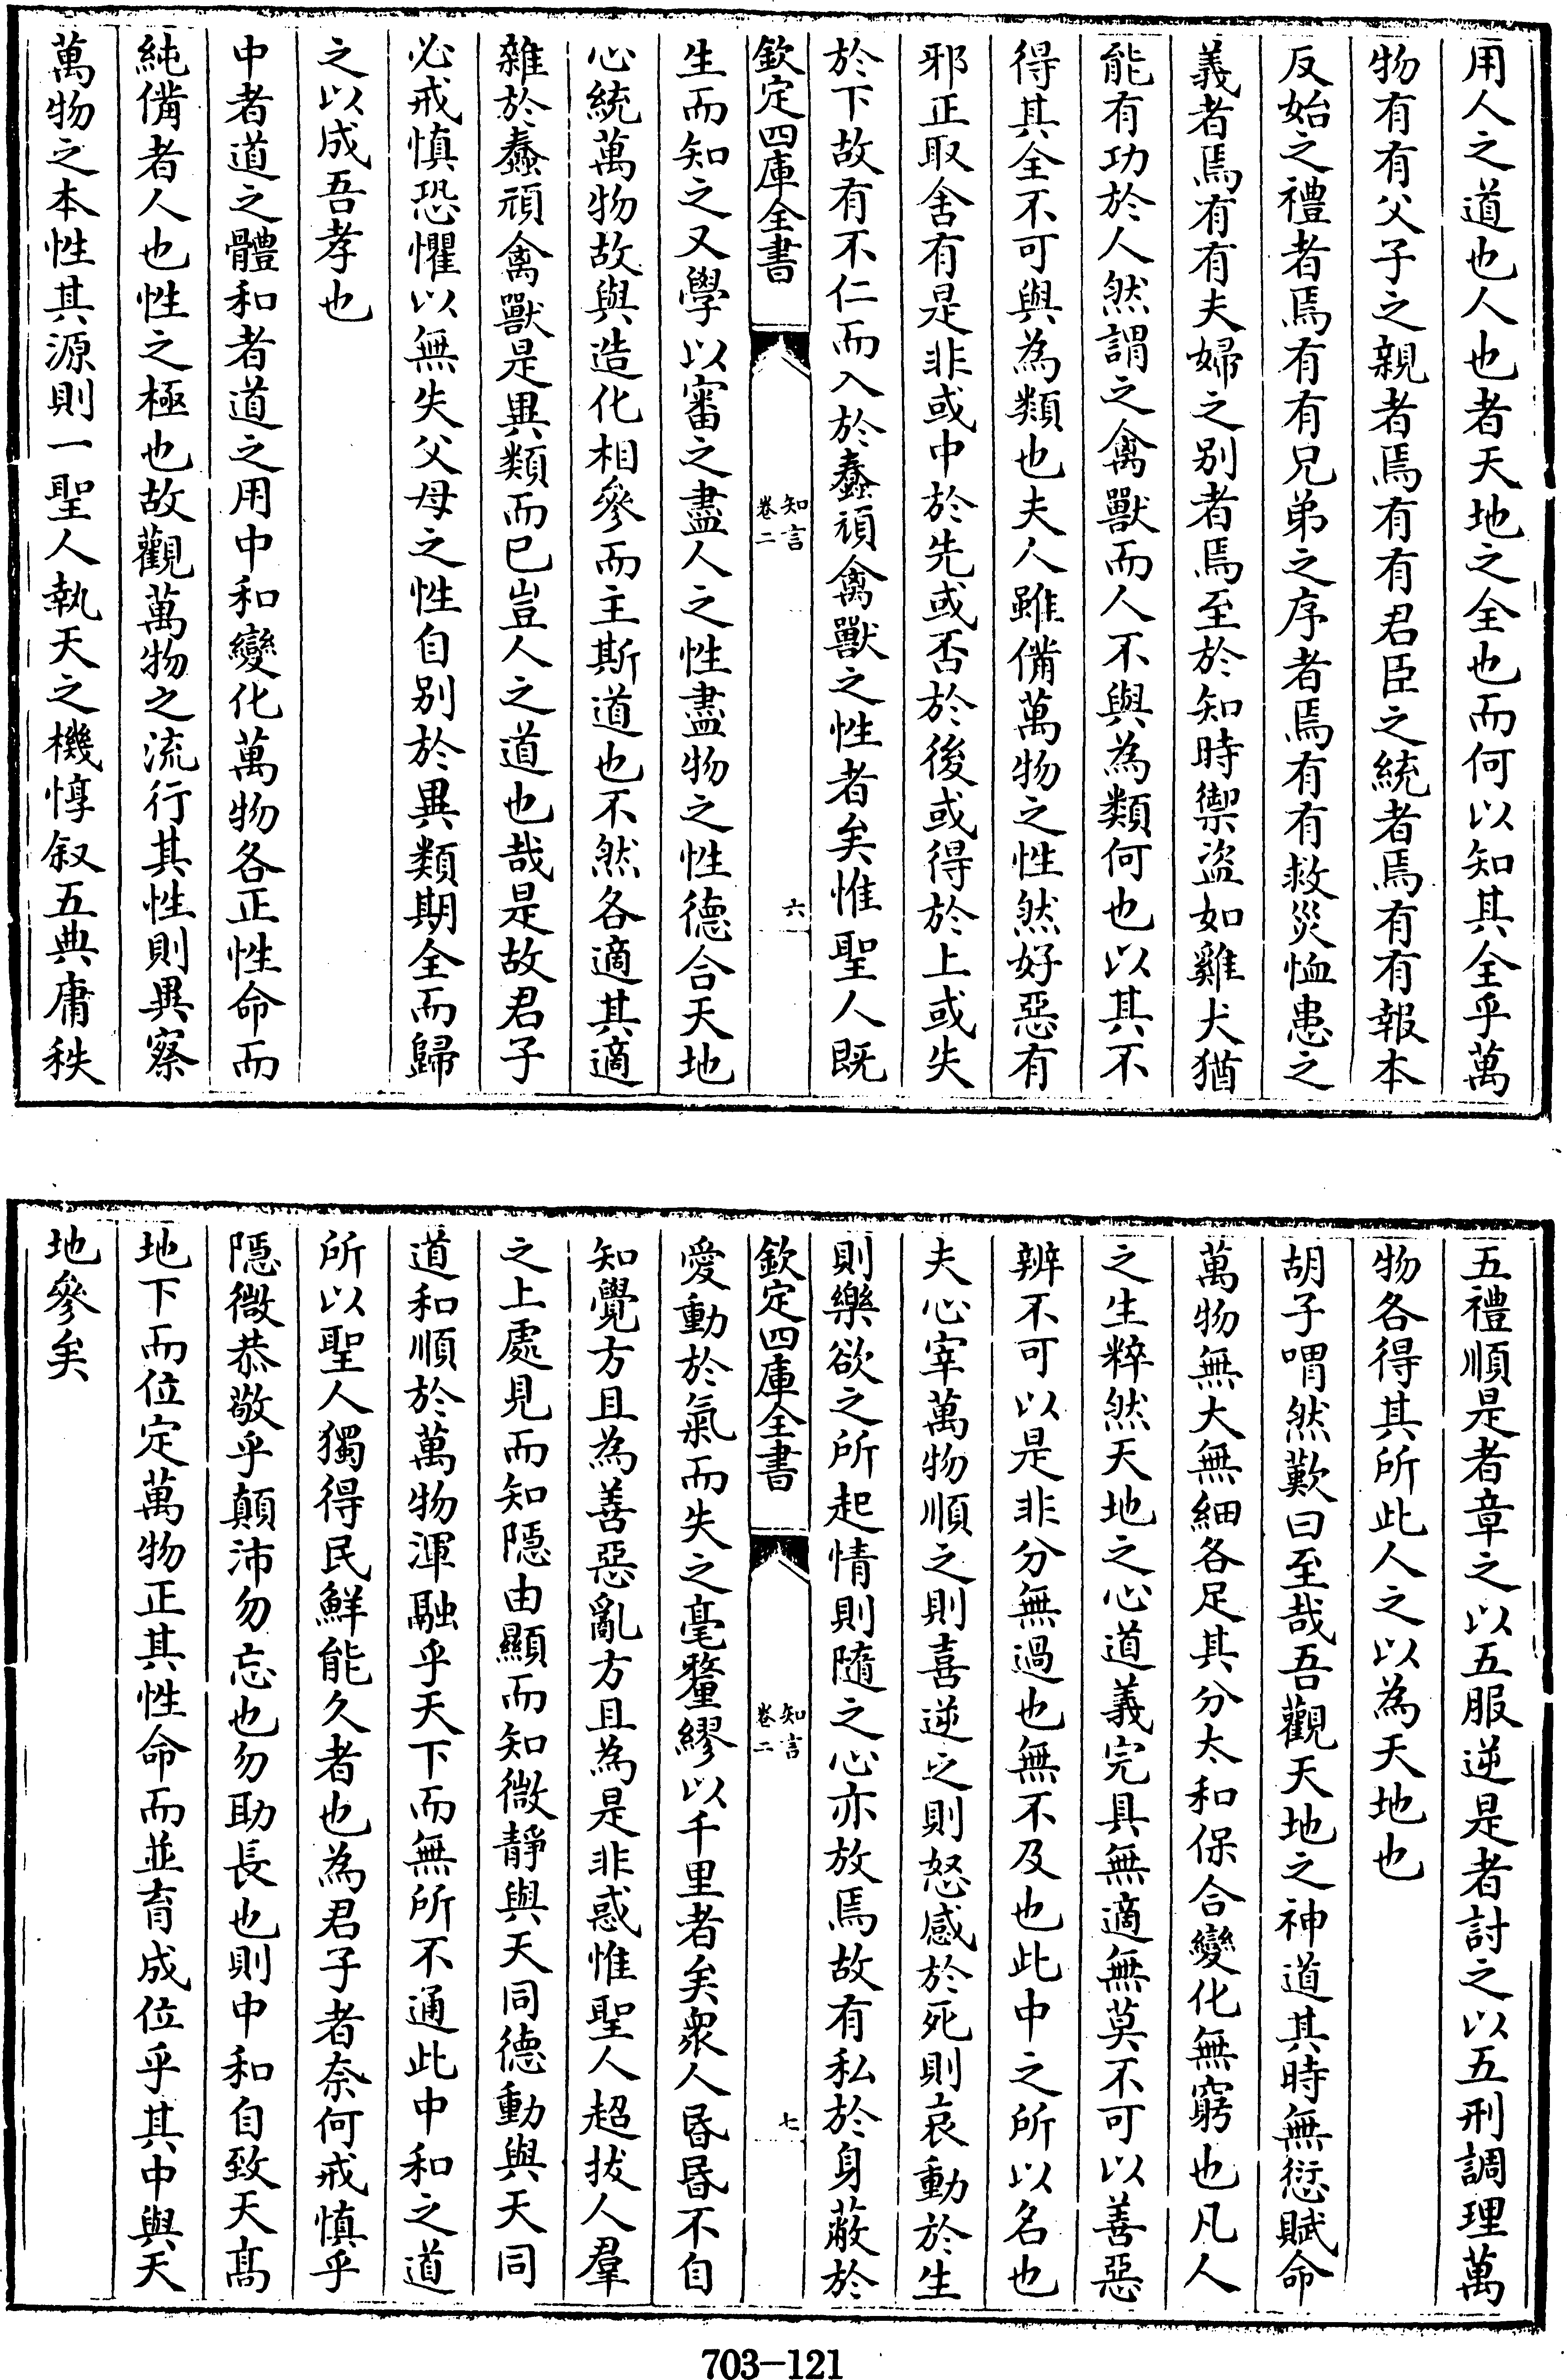 用人之道也人也者天地之全也而何以知其全乎萬
物有有父子之親者焉有有君臣之統者焉有有報本
反始之禮者焉有有兄弟之序者焉有有救災恤患之
義者焉有有夫婦之别者焉焉至於知時禦盗如雞犬猶
能有功於人然謂之禽獸而人不與為類何也以其不
得其全不可與為類也夫人雖備萬物之性然好惡有
邪正取舍有是非或中於先或否於後或得於上或失
於下故有不仁而入於蠢頑禽獸之性者矣惟聖人既
欽定四庫全書
知言
卷二
六
生而知之又學以審之盡人之性盡物之性德合天地
心統萬物故與造化相參而主斯道也不然各適其適
雜於蠢頑禽獸是異類而已豈人之道也哉是故君子
必戒慎恐懼以無失父母之性自别於異類期全而歸
之以成吾孝也
中者道之體和者道之用中和變化萬物各正性命而
純備者人也性之極也故觀萬物之流行其性則異察
萬物之本性其源則一聖人執天之機惇叙五典庸秩
五禮順是者章之以五服逆是者討之以五刑調理萬
物各得其所此人之以為天地也
胡子喟然歎曰至哉吾觀天地之神道其時無愆賦命
萬物無大無細各足其分太和保合變化無窮也凡人
之生粹然天地之心道義完具無適無莫不可以善惡
辨不可以是非分無過也無不及也此中之所以名也
夫心宰萬物順之則喜逆之則怒感於死則哀動於生
則樂欲之所起情則隨之心亦放焉故有私於身蔽於
欽定四庫全書
知言
卷二
七
愛動於氣而失之毫釐繆以千里者矣衆人昬昬不自
知覺方且為善惡亂方且為是非惑惟聖人超拔人羣
之上處見而知隱由顯而知微靜與天同德動與天同
道和順於萬物渾融乎天下而無所不通此中和之道
所以聖人獨得民鮮能久者也為君子者奈何戒慎乎
隱微恭敬乎顛沛勿忘也勿助長也則中和自致天高
地下而位定萬物正其性命而並育成位乎其中與天
地參矣
703-121